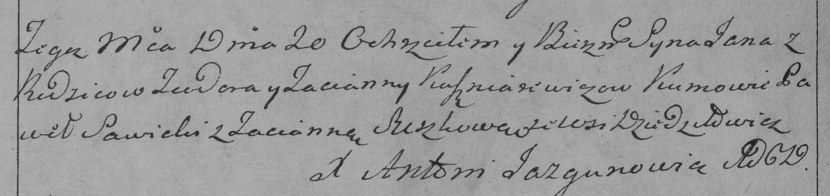 Tegoż Mca Dnia 20 Ochrzciłem y Bierzm Syna Jana z
Rodzicow Teodora y Tacianny Kuszniarewiczow Kumowie Pa
weł Sawicki z Tacianną Suszkową ze wsi Dziedziłowicz
X Antoni Jazgunowicz